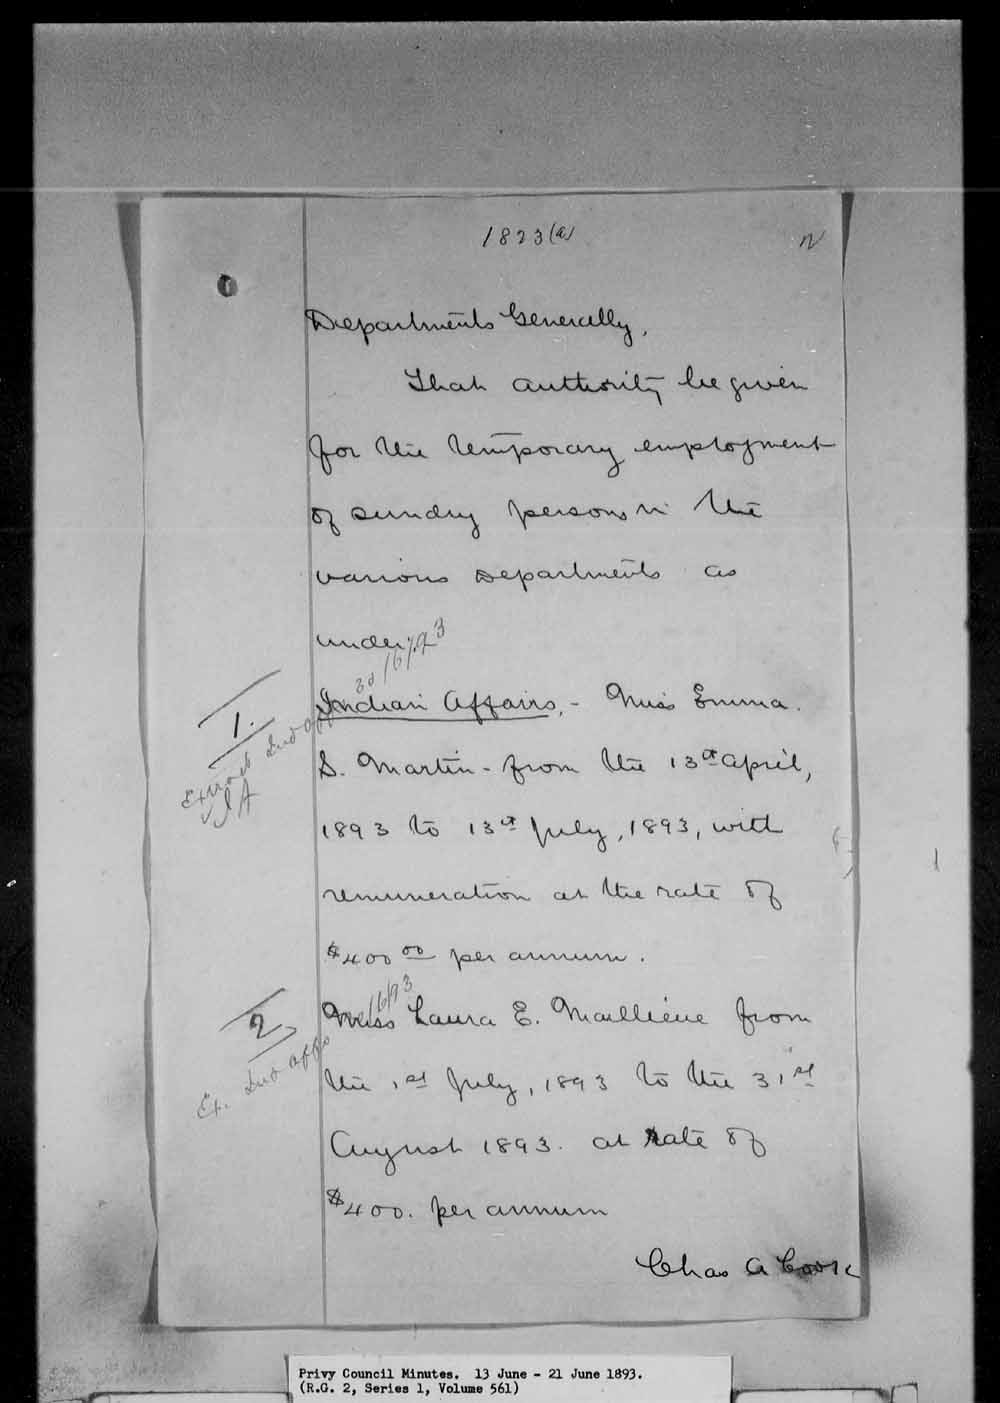 1823(a)
Departments Generally,
That authority be given
for the temporary employment
of sundry persons in the
various Departments as
under;
Indian Affairs,- Miss Emma.
S. Martin - from the 13th April,
1893 to 13th July, 1893, with
remuneration at the rate of
$400 00 per annum.
Miss Laura E. Maillieue from
the 1st July, 1893 to the 31st
August 1893. at rate of
$400. per annum
Chas A Cook
1.
Extract Ind Affs
IA
2
Ex. Ind Affs
Privy Council Minutes. 13 June - 21 June 1893.
(R.G. 2, Series 1, Volume 561)